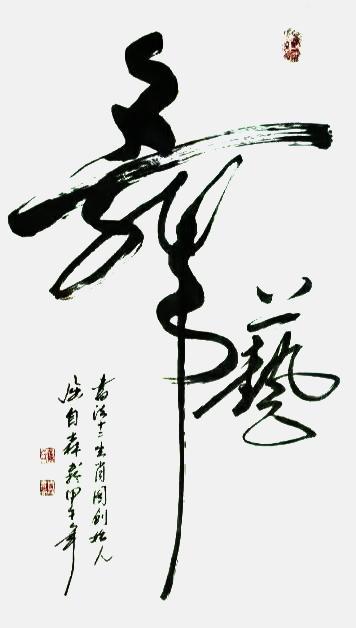 舞
藝
書法十二生肖図創始人
自森甲午年